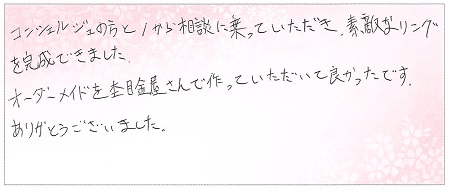 コンシェルジュの方と1から相談に乗っていただき、素敵なリング
を完成できました。
オーダーメイドを杢目金屋さんで作っていただいて良かったです。
ありがとうございました。